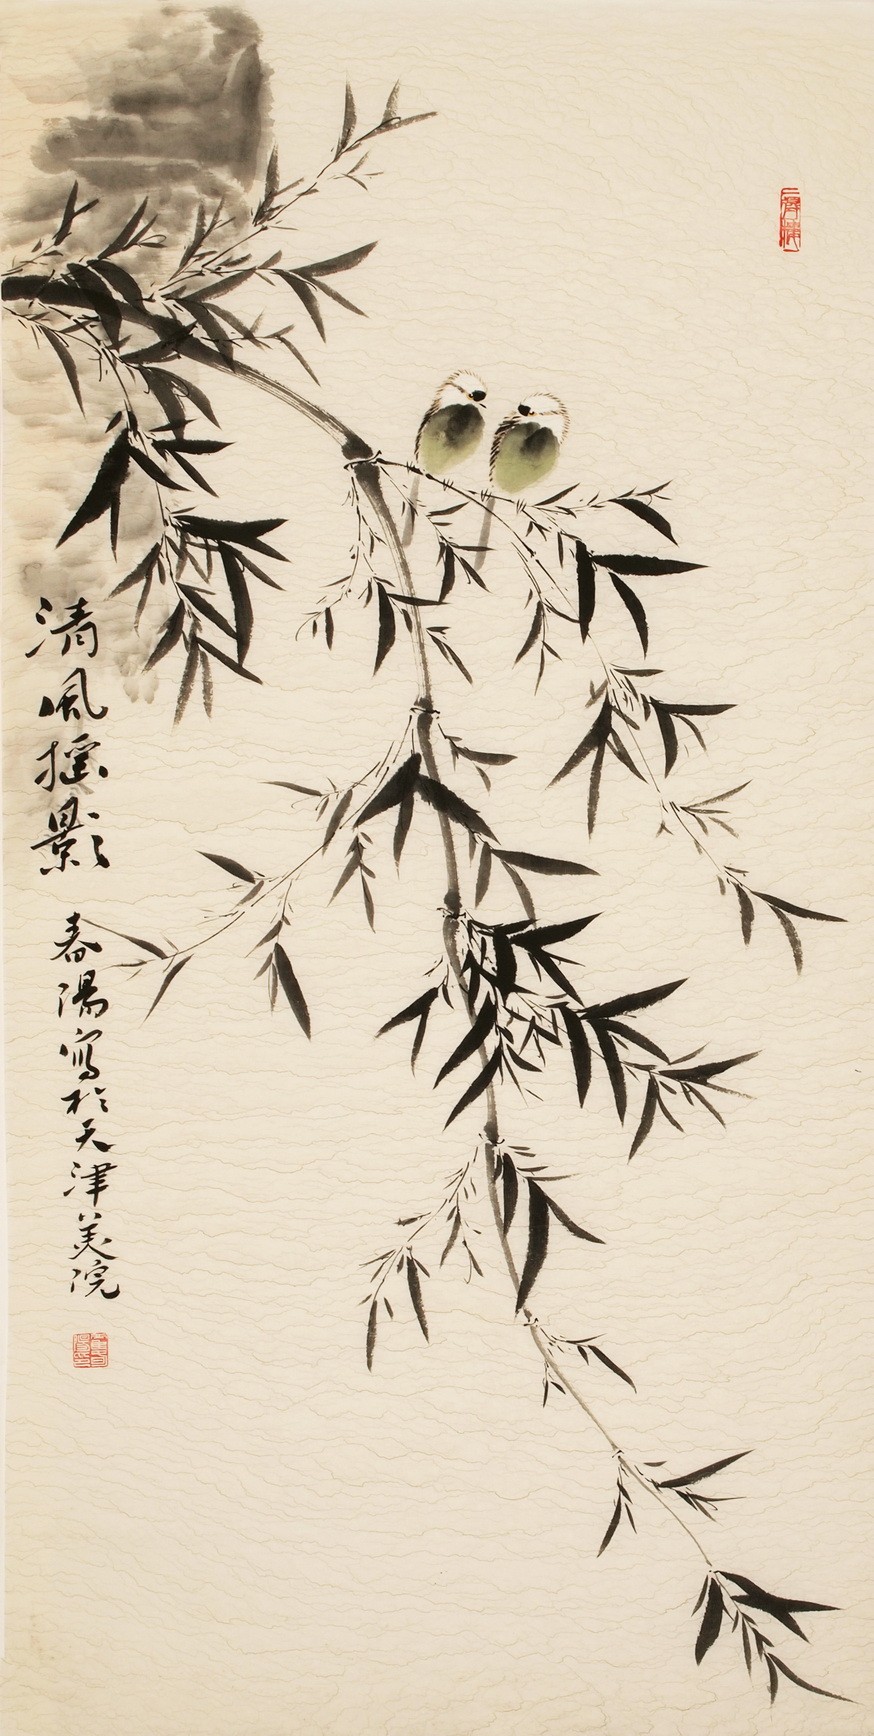 清風摇影
春陽寫於天津美院